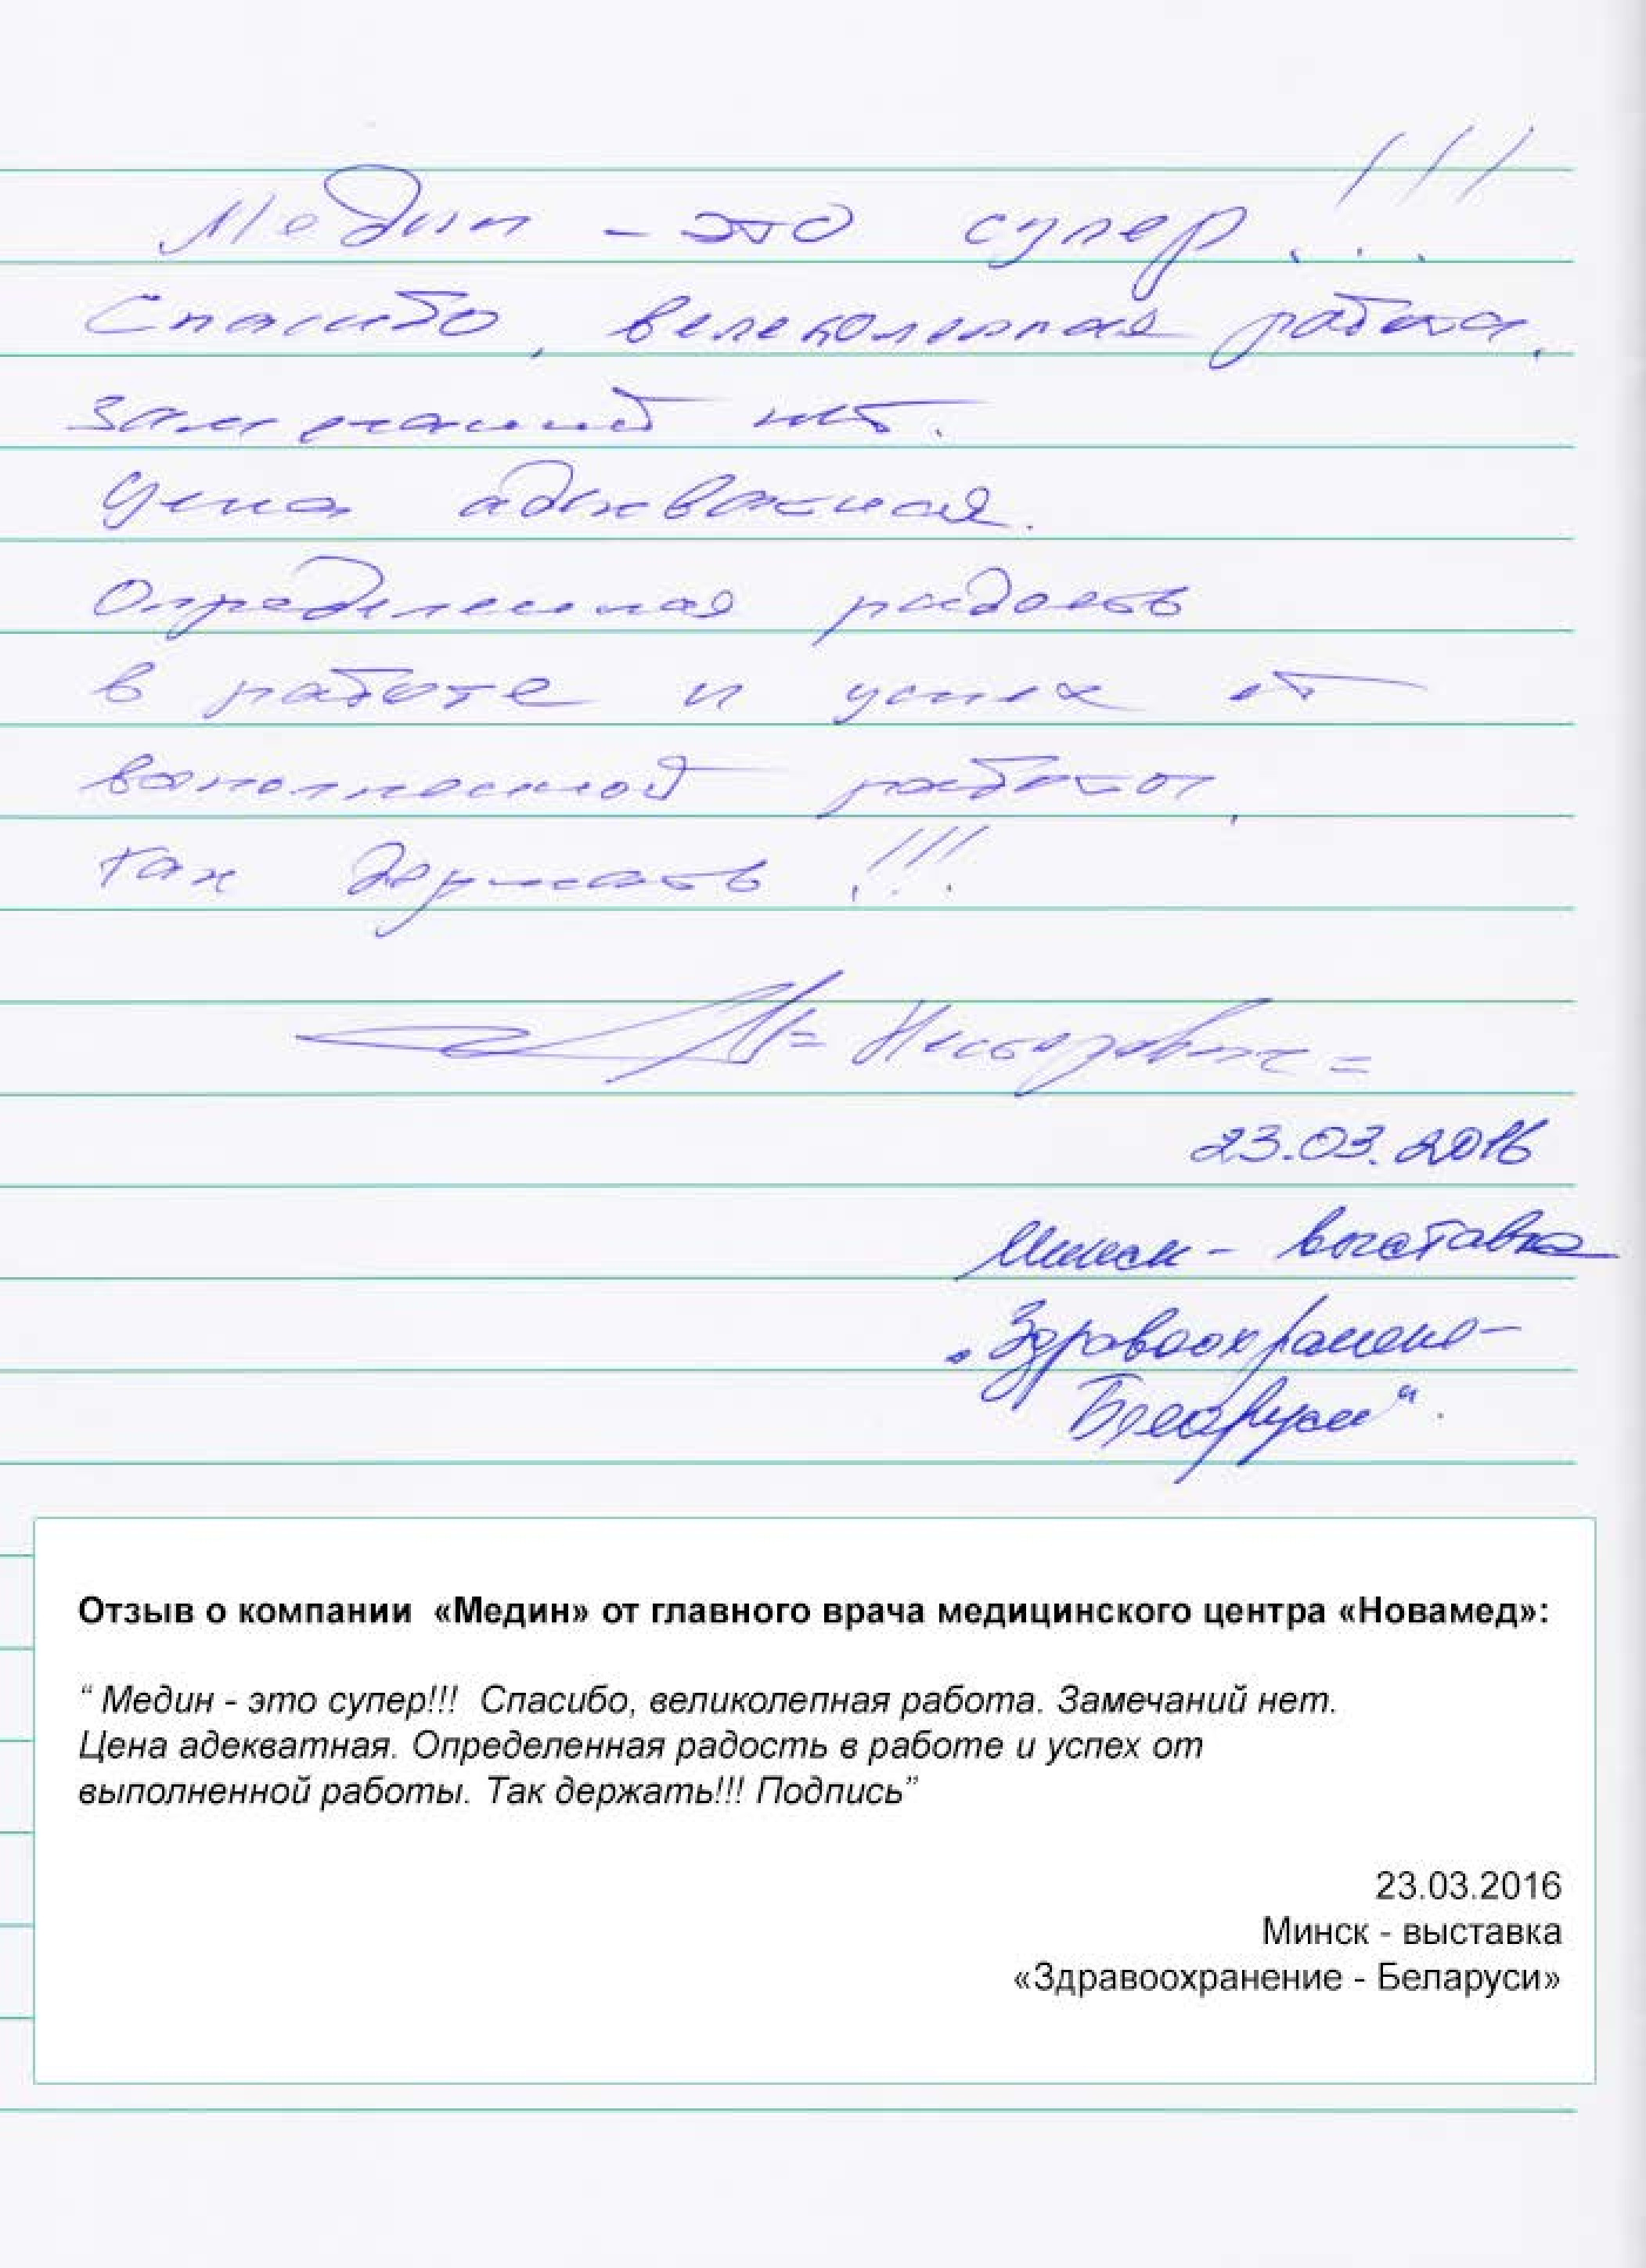 Медин - это супер!!!
Спасибо, великолепная работа.
Замечаний нет.
Цена адекватная.
Определенная радость
в работе и успех от
выполненной работы.
Так держать!!!
23.03.2016
Минск - выставка
"Здравоохранение-
Беларуси".
Отзыв о компании «Медин» от главного врача медицинского центра «Новамед»:
“ Медин - это супер!!! Спасибо, великолепная работа. Замечаний нет.
Цена адекватная. Определенная радость в работе и успех от
выполненной работы. Так держать!!! Подпись”
23.03.2016
Минск - выставка
«Здравоохранение - Беларуси»